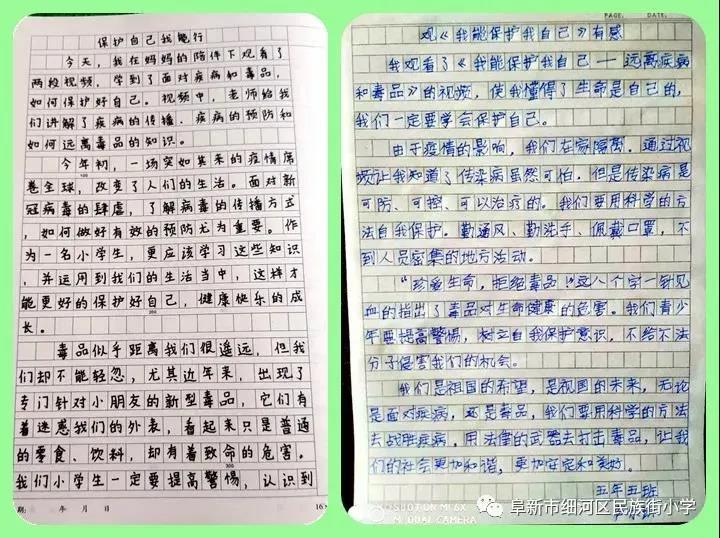 保护自己我能行
今天，我在妈妈的陪伴下观看了
两段视频，学到了面对疾病和毒品，
如何保护好自己。视频中，老师给我
们讲解了疾病的传播、疾病的预防和
如何远离毒品的知识。
今年初，一场突如其来的疫情席
卷全球，改变了人们的生活。面对新
冠病毒的肆虐，了解病毒的传播方式
，如何做好有效的预防尤为重要。作
为一名小学生，更应该学习这些知识
，并运用到我们的生活当中，这样才
能更好的保护好自己，健康快乐的成
长。
毒品似乎距离我们很遥远，但我
们却不能轻忽，尤其近年来，出现了
专门针对小朋友的新型毒品，它们有
着迷惑我们的外表，看起来只是普通
的零食、饮料，却有着致命的危害。
我们小学生一定要提高警惕，认识到
100
200
300
期: 年 月 日
16
PAGE. DATE.
观《我能保护我自己》有感
我观看了《我能保护我自己—远离疾病
和毒品》的视频，使我懂得了生命是自己的，
我们一定要学会保护自己。
由于疫情的影响，我们在家隔离。通过视
频让我知道了传染病虽然可怕，但是传染病是
可防、可控、可以治疗的。我们要用科学的方
法自我保护。勤通风、勤洗手、佩戴口罩，不
到人员密集的地方活动。
“珍爱生命，拒绝毒品”这八个字一针见
血的指出了毒品对生命健康的危害。我们青少
年要提高警惕，树立自我保护意识，不给不法
分子侵害我们的机会。
我们是祖国的希望，是祖国的未来，无论
是面对疾病，还是毒品，我们要用科学的方法
去战胜疾病，用法律的武器去打击毒品，让我
们的社会更加和谐，更加安定和美好。
五年五班
SHOT ON MI 6X
MI DUAL CAMERA
阜新市细河区民族街小学